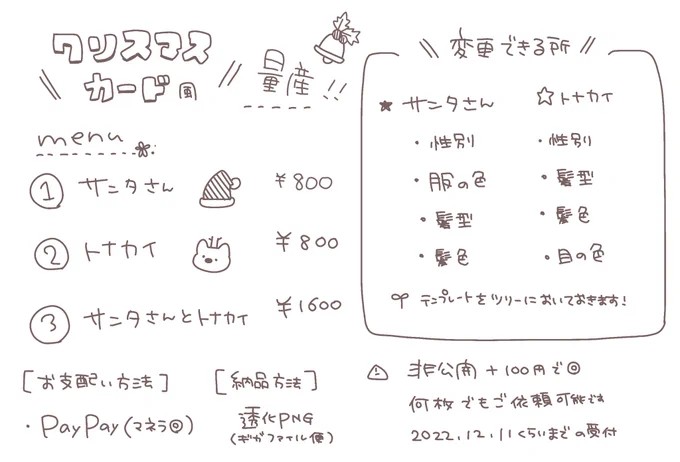 クリスマス
カード風
量産!!
menu
① サンタさん ¥800
② トナカイ ¥800
③ サンタさんとトナカイ ¥1600
[お支払い方法]
・PayPay(マネラ◎)
[納品方法]
透化PNG
(ギガファイル便)
\\ 変更できる所 //
★ サンタさん
・性別
・服の色
・髪型
・髪色
☆トナカイ
・性別
・髪型
・髪色
・目の色
テンプレートをツリーにおいておきます!
⚠ 非公開+100円で◎
何枚でもご依頼可能です
2022.12.11くらいまでの受付